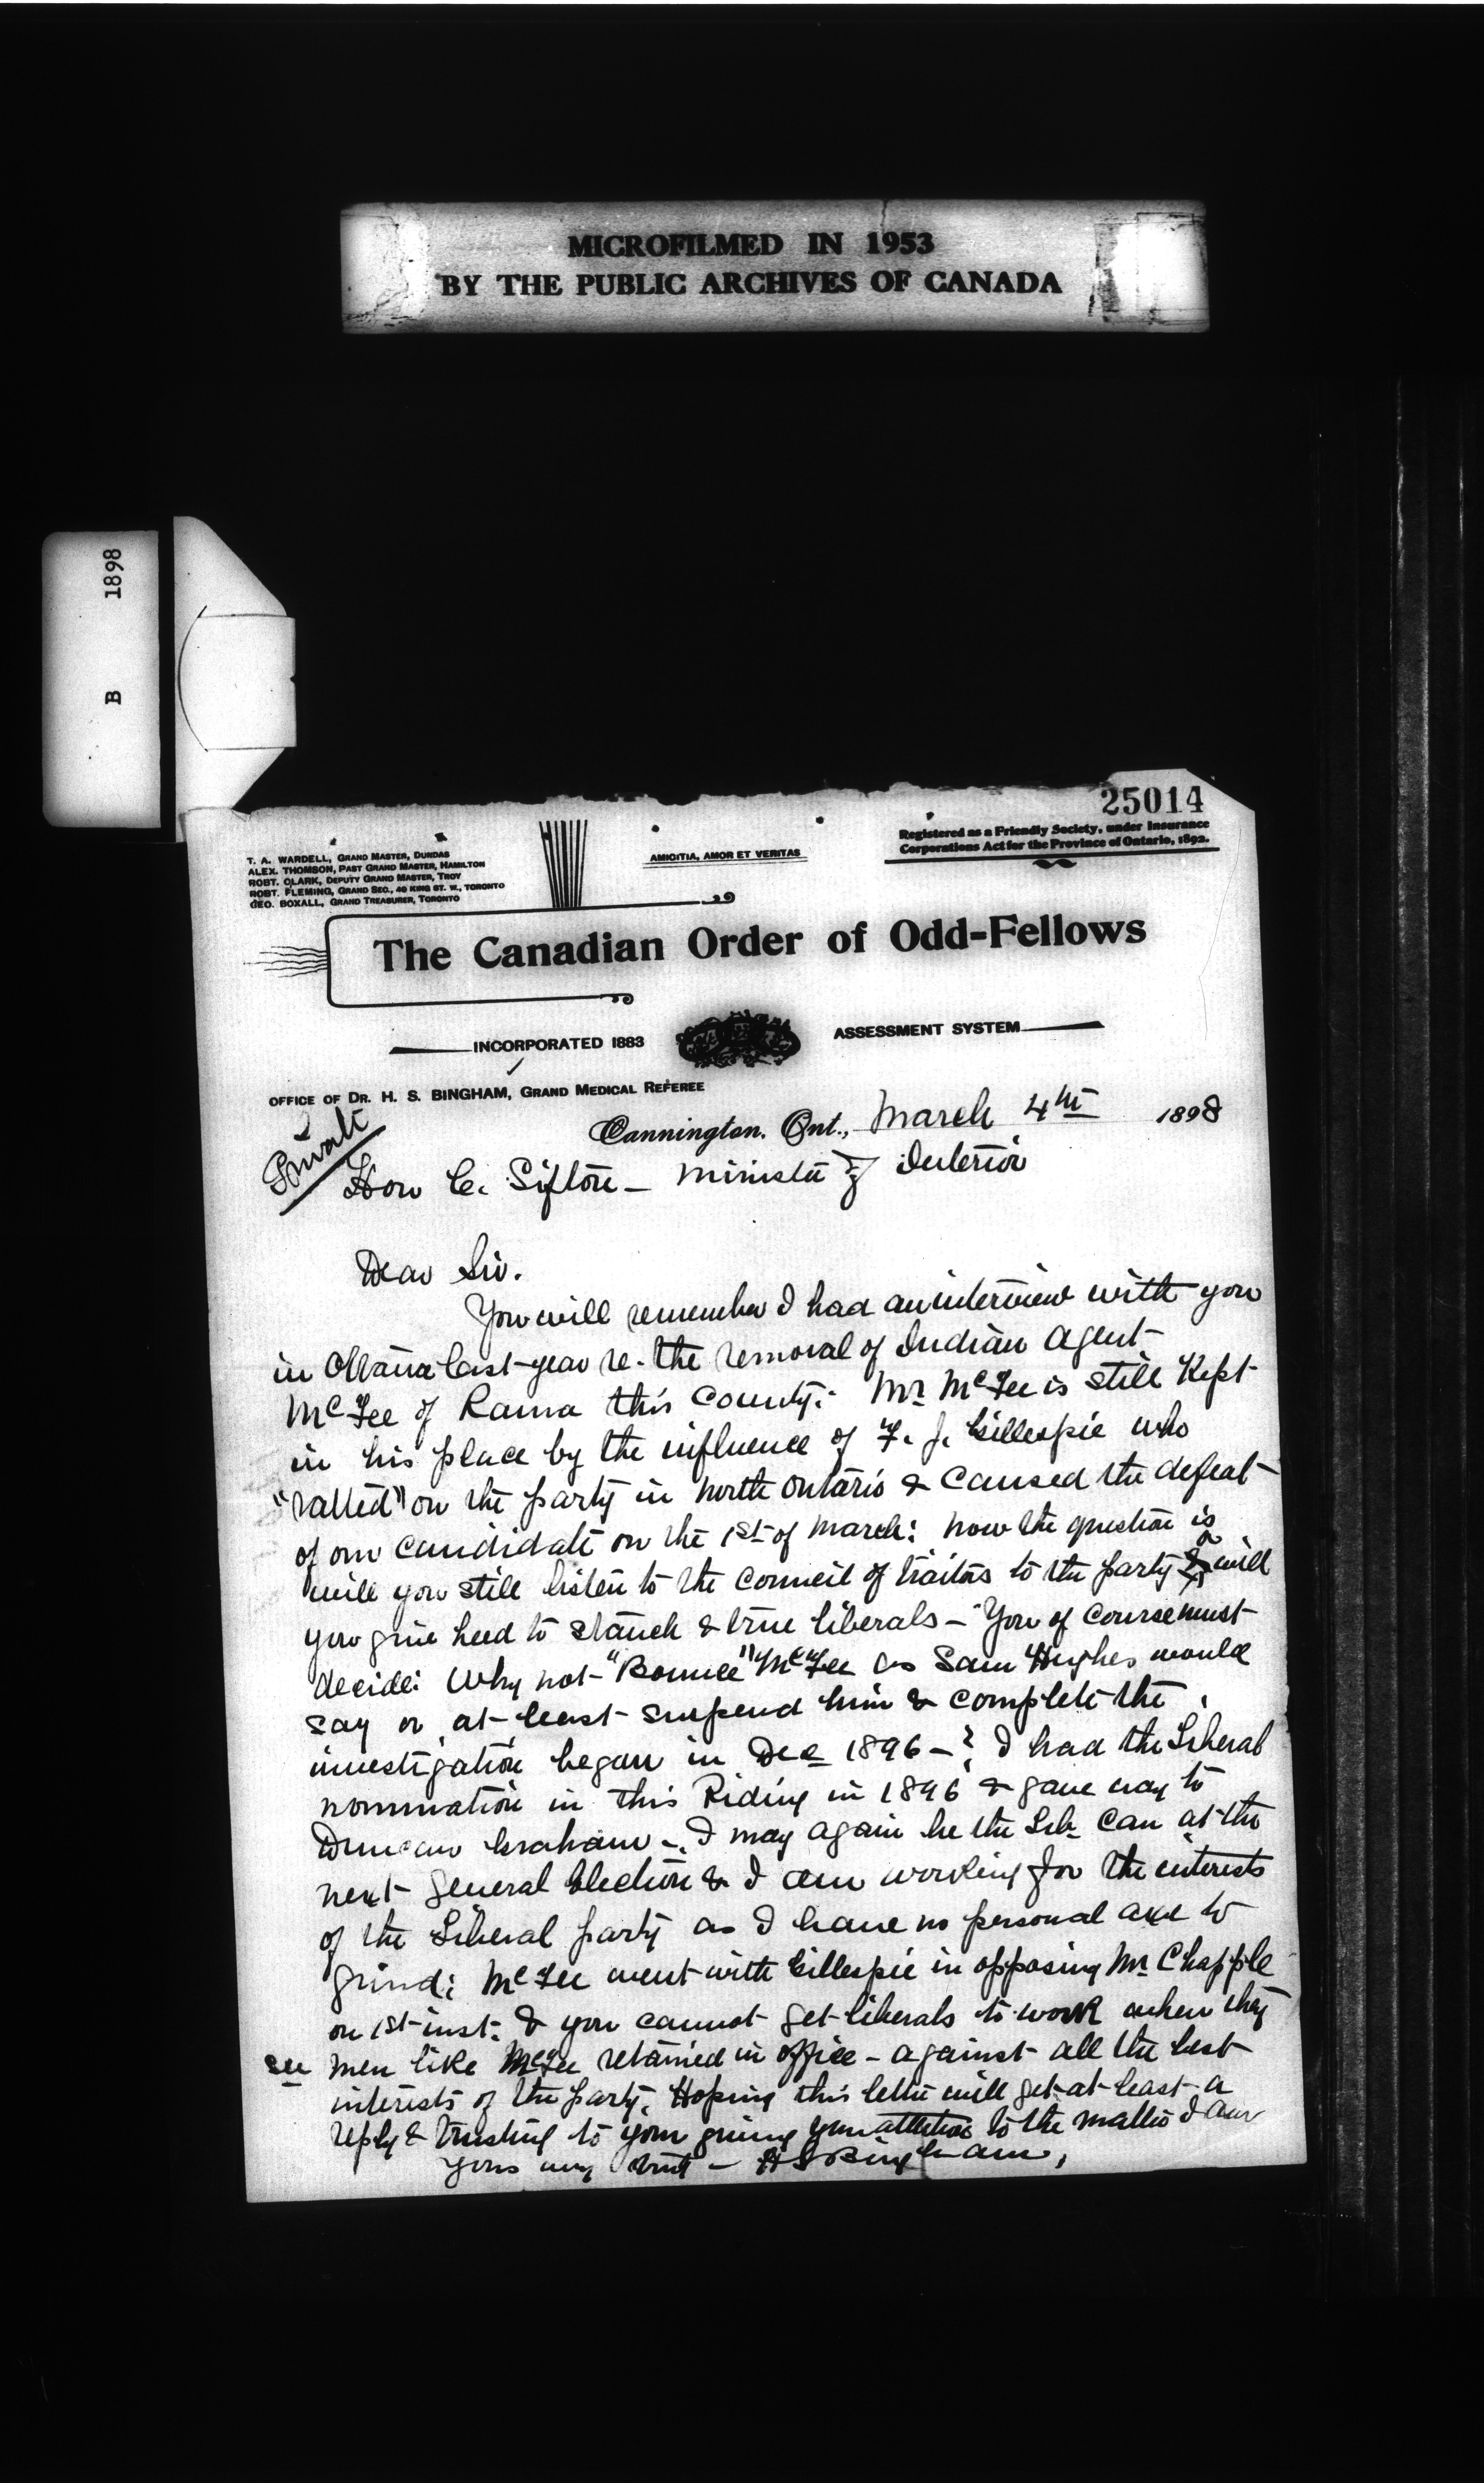 MICROFILMED IN 1953
BY THE PUBLIC ARCHIVES OF CANADA
B 1898
25014
T. A. WARDELL, GRAND MASTER, DUNDAS
ALEX. THOMSON, PAST GRAND MASTER, HAMILTON
ROBT. CLARK, DEPUTY GRAND MASTER, TROY
ROBT. FLEMING, GRAND SEC., 49 KING ST. W., TORONTO
GEO. BOXALL, GRAND TREASURER, TORONTO
AMICITIA, AMOR ET VERITAS
Registered as a Friendly Society, under Insurance
Corporations Act for the Province of Ontario, 1892.
The Canadian Order of Odd-Fellows
INCORPORATED 1883
ASSESSMENT SYSTEM
OFFICE OF DR. H. S. BINGHAM, GRAND MEDICAL REFEREE
Private
Cannington, Ont., March 4th 1898
Hon C. Sifton - Minister of Interior
Dear Sir.
You will remember I had an interview with you
in Ottawa last year re. the removal of Indian Agent
McFee of Rama this County: Mr McFee is still Kept
in his place by the influence of F. J. Gillespie who
"ratted" on the party in North Ontario & caused the defeat
of our candidate on the 1st of March: now the question is
will you still listen to the Council of traitors to the party or will
you give heed to stanch & true liberals - You of course must
decide: Why not "Bounce" McFee as Sam Hughes would
say or at least suspend him & complete the
investigation began in Dec 1896 - ? I had the Liberal
nomination in this Riding in 1896 & gave way to
Duncan Graham - I may again be the Lib Can at the
next General Election & I am working for the interests
of the Liberal party as I have no personal axe to
grind: McFee went with Gillespie in opposing Mr Chapple
on 1st inst: & you cannot get liberals to work when they
see men like McFee retained in office - against all the best
interests of the party. Hoping this letter will get at least a
reply & trusting to your giving your attention to the matter I am
Yours very truly - H S Bingham,